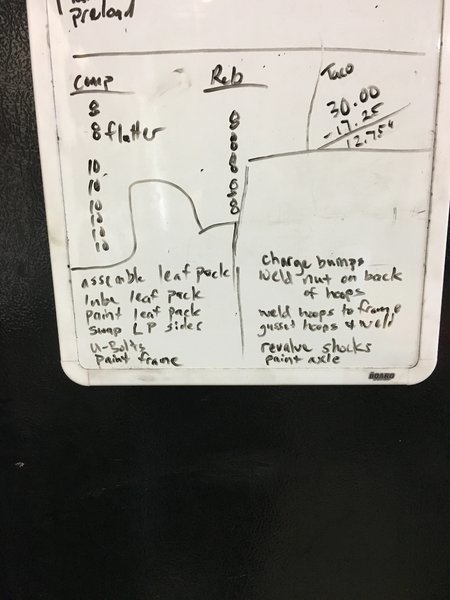 preload
Comp
8
8 flatter
10
10
10
10
10
10
Reb
8
8
8
8
8
8
Taco
30.00
-17.25
12.75
assemble leaf pack
lube leaf pack
paint leaf pack
swap LP sides
U-Bolts
paint frame
charge bumps
weld nut on back
of hoops
weld hoops to frame
gusset hoops & weld
revalve shocks
paint axle
BOARD